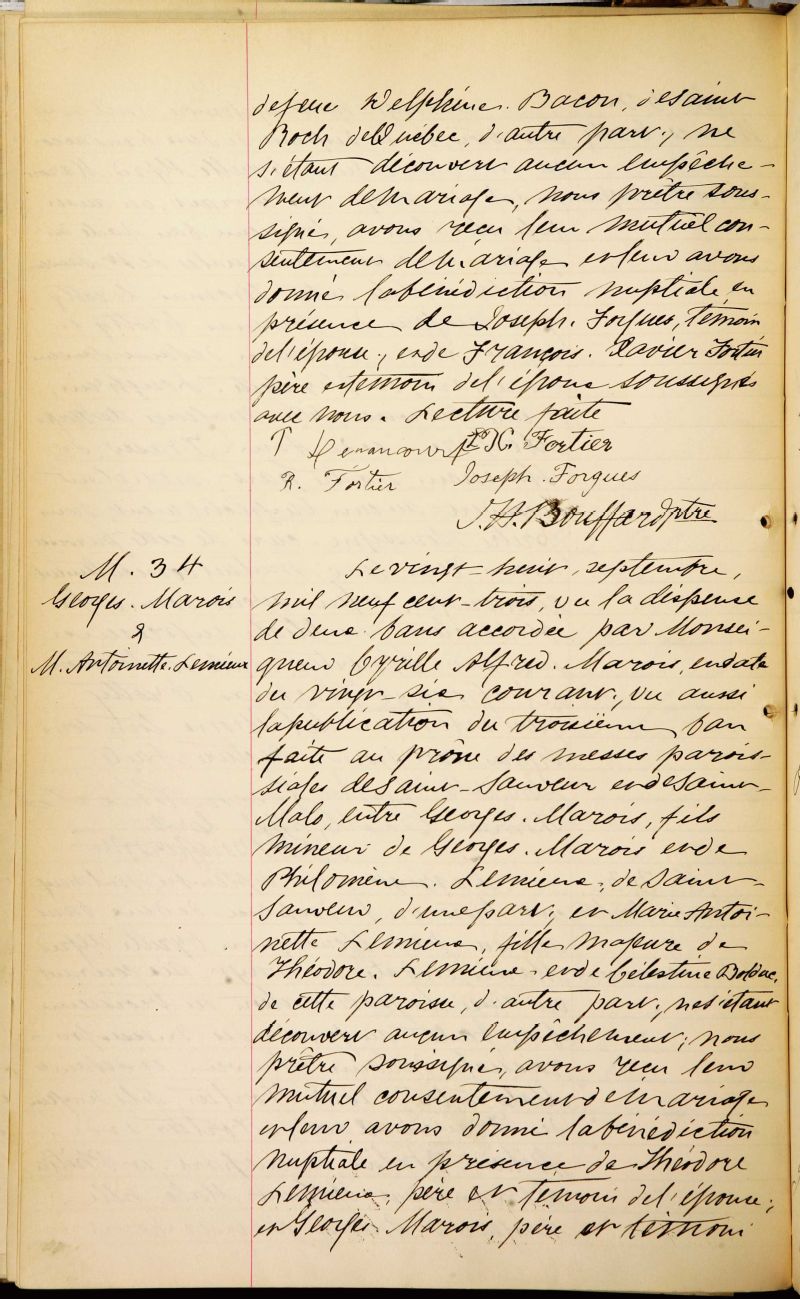 de feue Delphine Bacon, de saint
Roch de Québec, d'autre part; ne
s'étant découvert aucun empêche-
ment de mariage, nous prêtre sous-
signé, avons reçu leur mutuel con-
sentement de mariage et leur avons
donné la bénédiction nuptiale en
présence de Joseph Forgues, témoin
de l'épouse; et de François Xavier Fortier
père et témoin de l'époux soussignés
avec nous. Lecture faite
F X. Fortier
R. Fortier Joseph Forgues
J. H. Bouffard ptre
M. 34
Georges Marois
&
M. Antoinette Lemieux
Le vingt-huit septembre,
mil neuf cent-trois, vu la dispense
de deux bans accordée par Monsei-
gneur Cyrille Alfred Marois, en date
du vingt-six courant, vu aussi
la publication du troisième ban
faite au prône des messes parois-
siales de Saint-Sauveur et de Saint-
Malo, entre Georges Marois, fils
mineur de Georges Marois et de
Philomène Lemieux, de Saint-
Sauveur, d'une part; et Marie Antoi-
nette Lemieux, fille majeure de
Théodore Lemieux et de Célestine Bolduc,
de cette paroisse, d'autre part; ne s'étant
découvert aucun empêchement; nous
prêtre soussigné, avons reçu leur
mutuel consentement de mariage
et leur avons donné la bénédiction
nuptiale en présence de Théodore
Lemieux, père et témoin de l'épouse;
et Georges Marois, père et témoin